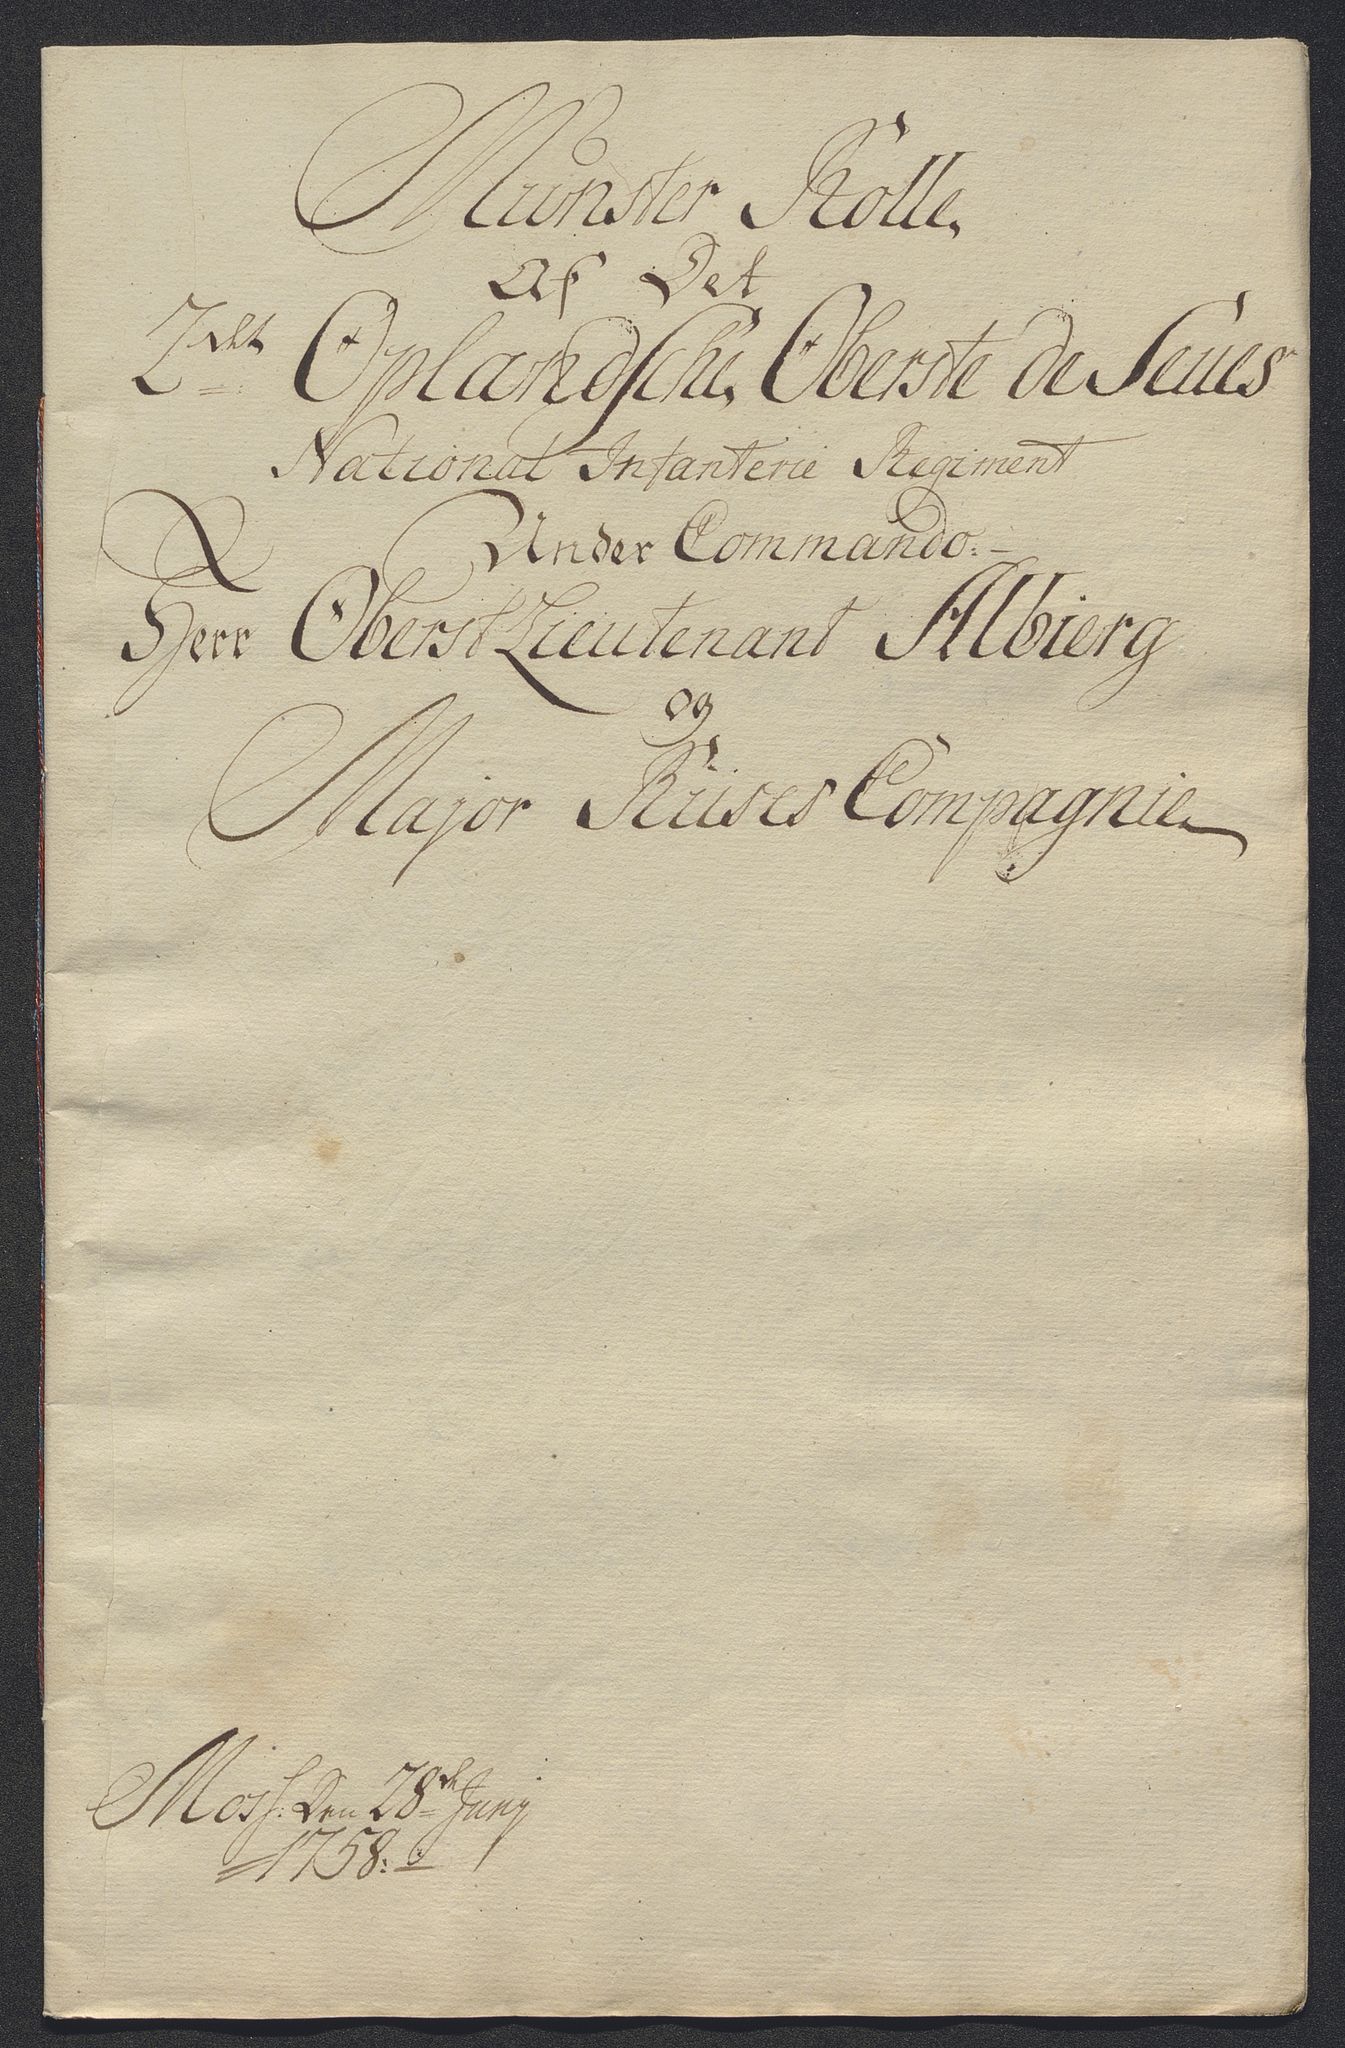 Munster Rolle,
Af Det
2det Oplandsche, Oberste de Seues
National Infanterie Regiment
Under Commando:-
Herr Oberst Lieutenant Albierg
og
Major Ruses Compagnie
Moss: Den 28de Junj
1758: